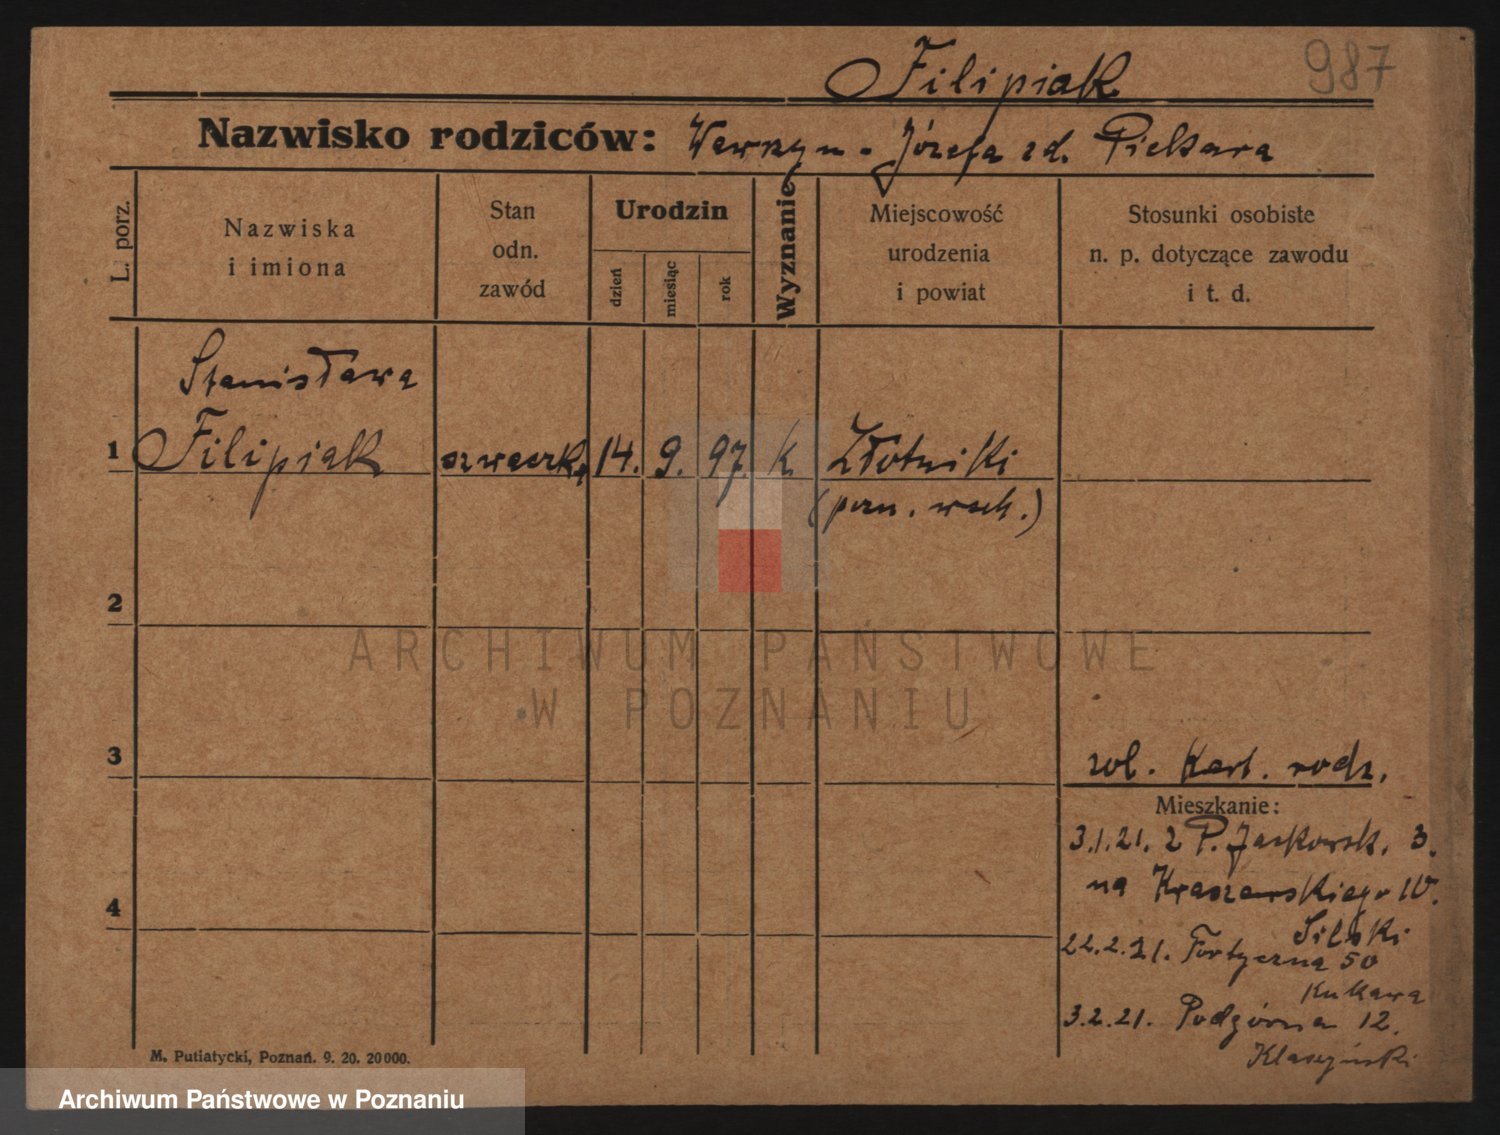 Filipiak
987
Nazwisko rodziców: Wawrzyn - Józefa zd. Piekara
L. porz.
Nazwiska
i imiona
Stan
odn.
zawód
Urodzin
dzień
miesiąc
rok
Wyznanie
Miejscowość
urodzenia
i powiat
Stosunki osobiste
n. p. dotyczące zawodu
i t. d.
Stanisława
1 Filipiak szwaczka 14. 9. 97. k. Złotniki
(pozn. wsch.)
2
ARCHIWUM PAŃSTWOWE
W POZNANIU
3
zob. Kart. rodz.
Mieszkanie:
3.1.21. z P. Jackowsk. 3.
na Kraszewskiego 10.
4
Silski
22.2.21. Forteczna 50
Kukawa
3.2.21. Podgórna 12.
M. Putiatycki, Poznań. 9. 20. 20000.
Archiwum Państwowe w Poznaniu